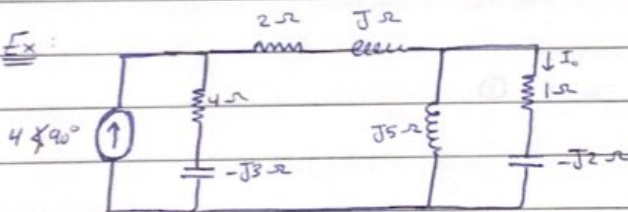 Ex:
2Ω JΩ
↓ I₀
4Ω 1Ω
4∡90° ↑ J5Ω
-J3Ω -J2Ω